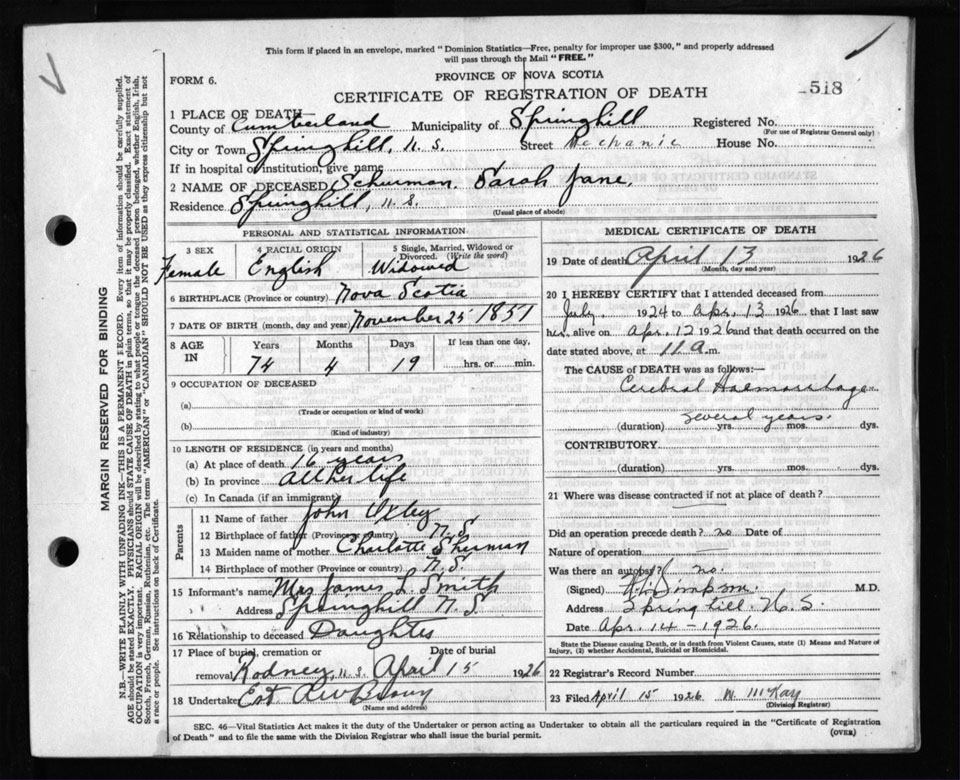 This form if placed in an envelope, marked "Dominion Statistics—Free, penalty for improper use $300," and properly addressed
will pass through the Mail "FREE."
FORM 6.
PROVINCE OF NOVA SCOTIA
518
CERTIFICATE OF REGISTRATION OF DEATH
1 PLACE OF DEATH
County of Cumberland Municipality of Springhill Registered No.
(For use of Registrar General only)
City or Town Springhill, N.S. Street Mechanic House No.
If in hospital or institution, give name
2 NAME OF DECEASED Schurman, Sarah Jane,
Residence Springhill, N.S.
(Usual place of abode)
PERSONAL AND STATISTICAL INFORMATION
3 SEX 4 RACIAL ORIGIN 5 Single, Married, Widowed or Divorced. (Write the word)
Female English Widowed
6 BIRTHPLACE (Province or country) Nova Scotia
7 DATE OF BIRTH (month, day and year) November 25 1851
8 AGE IN Years Months Days If less than one day,
74 4 19 hrs. or min.
9 OCCUPATION OF DECEASED
(a)
(Trade or occupation or kind of work)
(b)
(Kind of industry)
10 LENGTH OF RESIDENCE (in years and months)
(a) At place of death 16 years
(b) In province All her life
(c) In Canada (if an immigrant)
Parents
11 Name of father John Oxley
12 Birthplace of father (Province or country) N.S.
13 Maiden name of mother Charlotte Sherman
14 Birthplace of mother (Province or country) N.S.
15 Informant's name Mrs James L. Smith
Address Springhill N.S
16 Relationship to deceased Daughter
17 Place of burial, cremation or Date of burial
removal Rodney, N.S. April 15 1926
18 Undertaker Est Brown
(Name and address)
MEDICAL CERTIFICATE OF DEATH
19 Date of death April 13 1926
(Month, day and year)
20 I HEREBY CERTIFY that I attended deceased from
July. 1924 to Apr. 13 1926, that I last saw
her alive on Apr. 12 1926 and that death occurred on
date stated above, at 11 a.m.
The CAUSE OF DEATH was as follows:—
Cerebral Haemorrhage
several years.
(duration) yrs. mos. dys.
CONTRIBUTORY.
(duration) yrs. mos. dys.
21 Where was disease contracted if not at place of death?
Did an operation precede death? no Date of
Nature of operation
Was there an autopsy? no.
(Signed) Simpson. M.D.
Address Springhill. N.S.
Date Apr. 14 - 1926.
State the Disease causing Death, or in death from Violent Causes, state (1) Means and Nature of
Injury, (2) whether Accidental, Suicidal or Homicidal.
22 Registrar's Record Number
23 Filed April 15 1926 W. McKay
(Division Registrar)
SEC. 46—Vital Statistics Act makes it the duty of the Undertaker or person acting as Undertaker to obtain all the particulars required in the "Certificate of Registration
of Death" and to file the same with the Division Registrar who shall issue the burial permit.
(OVER)
MARGIN RESERVED FOR BINDING
N.B.—WRITE PLAINLY WITH UNFADING INK—THIS IS A PERMANENT RECORD. Every item of information should be carefully supplied.
AGE should be stated EXACTLY. PHYSICIANS should STATE CAUSE OF DEATH in plain terms, so that it may be properly classified. Exact statement of
OCCUPATION is very important. RACIAL ORIGIN will be described by stating to what people or tongue the deceased person belonged, whether English, Irish,
Scotch, French, German, Russian, Ruthenian, etc. The terms "AMERICAN" or "CANADIAN" SHOULD NOT BE USED as they express citizenship but not
a race or people. See instructions on back of Certificate.